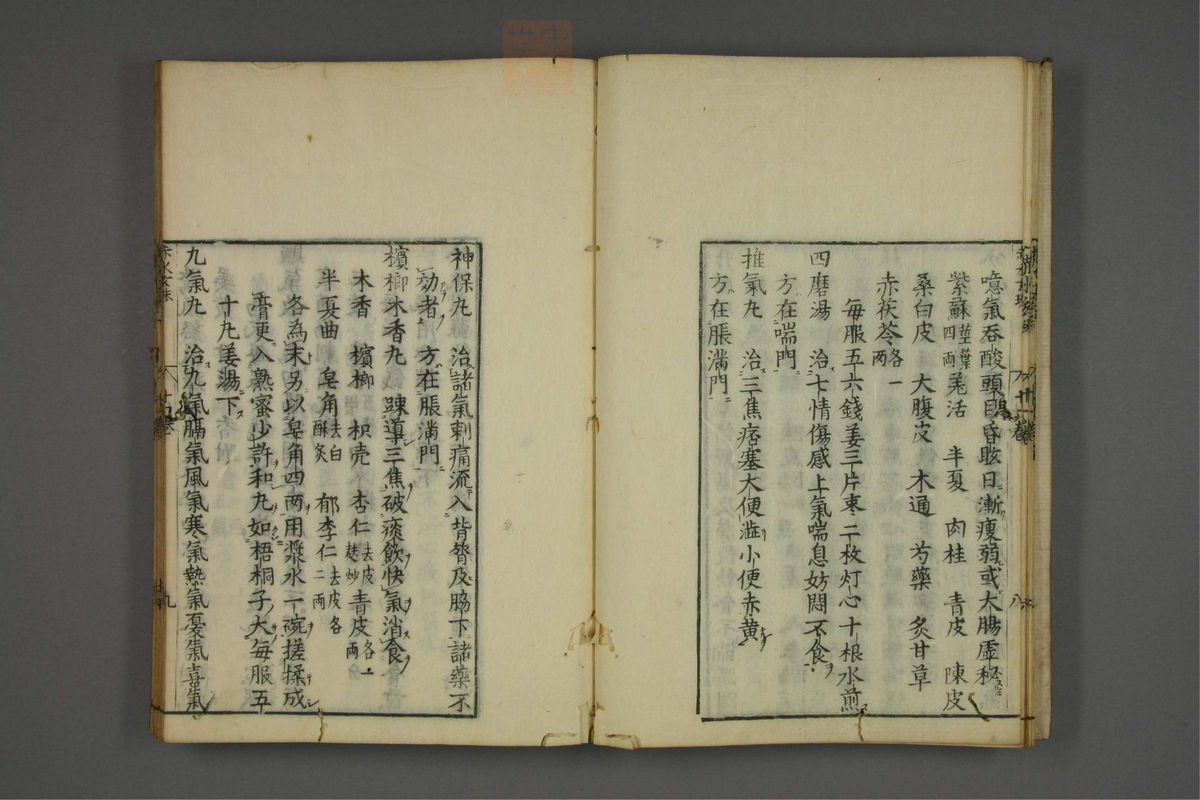 噫氣呑酸頭目昏眩日漸瘦弱或大腸虛秘
紫蘇莖葉四両羌活 半夏 肉桂 青皮 陳皮
桑白皮 大腹皮 木通 芍藥 炙甘草
赤茯苓各一両
毎服五六錢姜三片枣二枚灯心十根水煎
四磨湯 治七情傷感上氣喘息妨悶不食
方在喘門
推氣丸 治三焦痞塞大便澁小便赤黄
方在脹滿門
神保丸 治諸氣刺痛流入背膂及脇下諸藥不
効者 方在脹滿門
檳榔木香丸 踈導三焦破痰飲快氣消食
木香 檳榔 枳壳 杏仁去皮麩炒青皮各二両
半夏曲 皂角去白酥炙 郁李仁去皮各二両
各為末另以皂角四两用漿水一碗搓揉成
膏更入熟蜜少許和丸如梧桐子大毎服五
十丸姜湯下
九氣丸 治九氣膈氣風氣寒氣熱氣憂氣喜氣